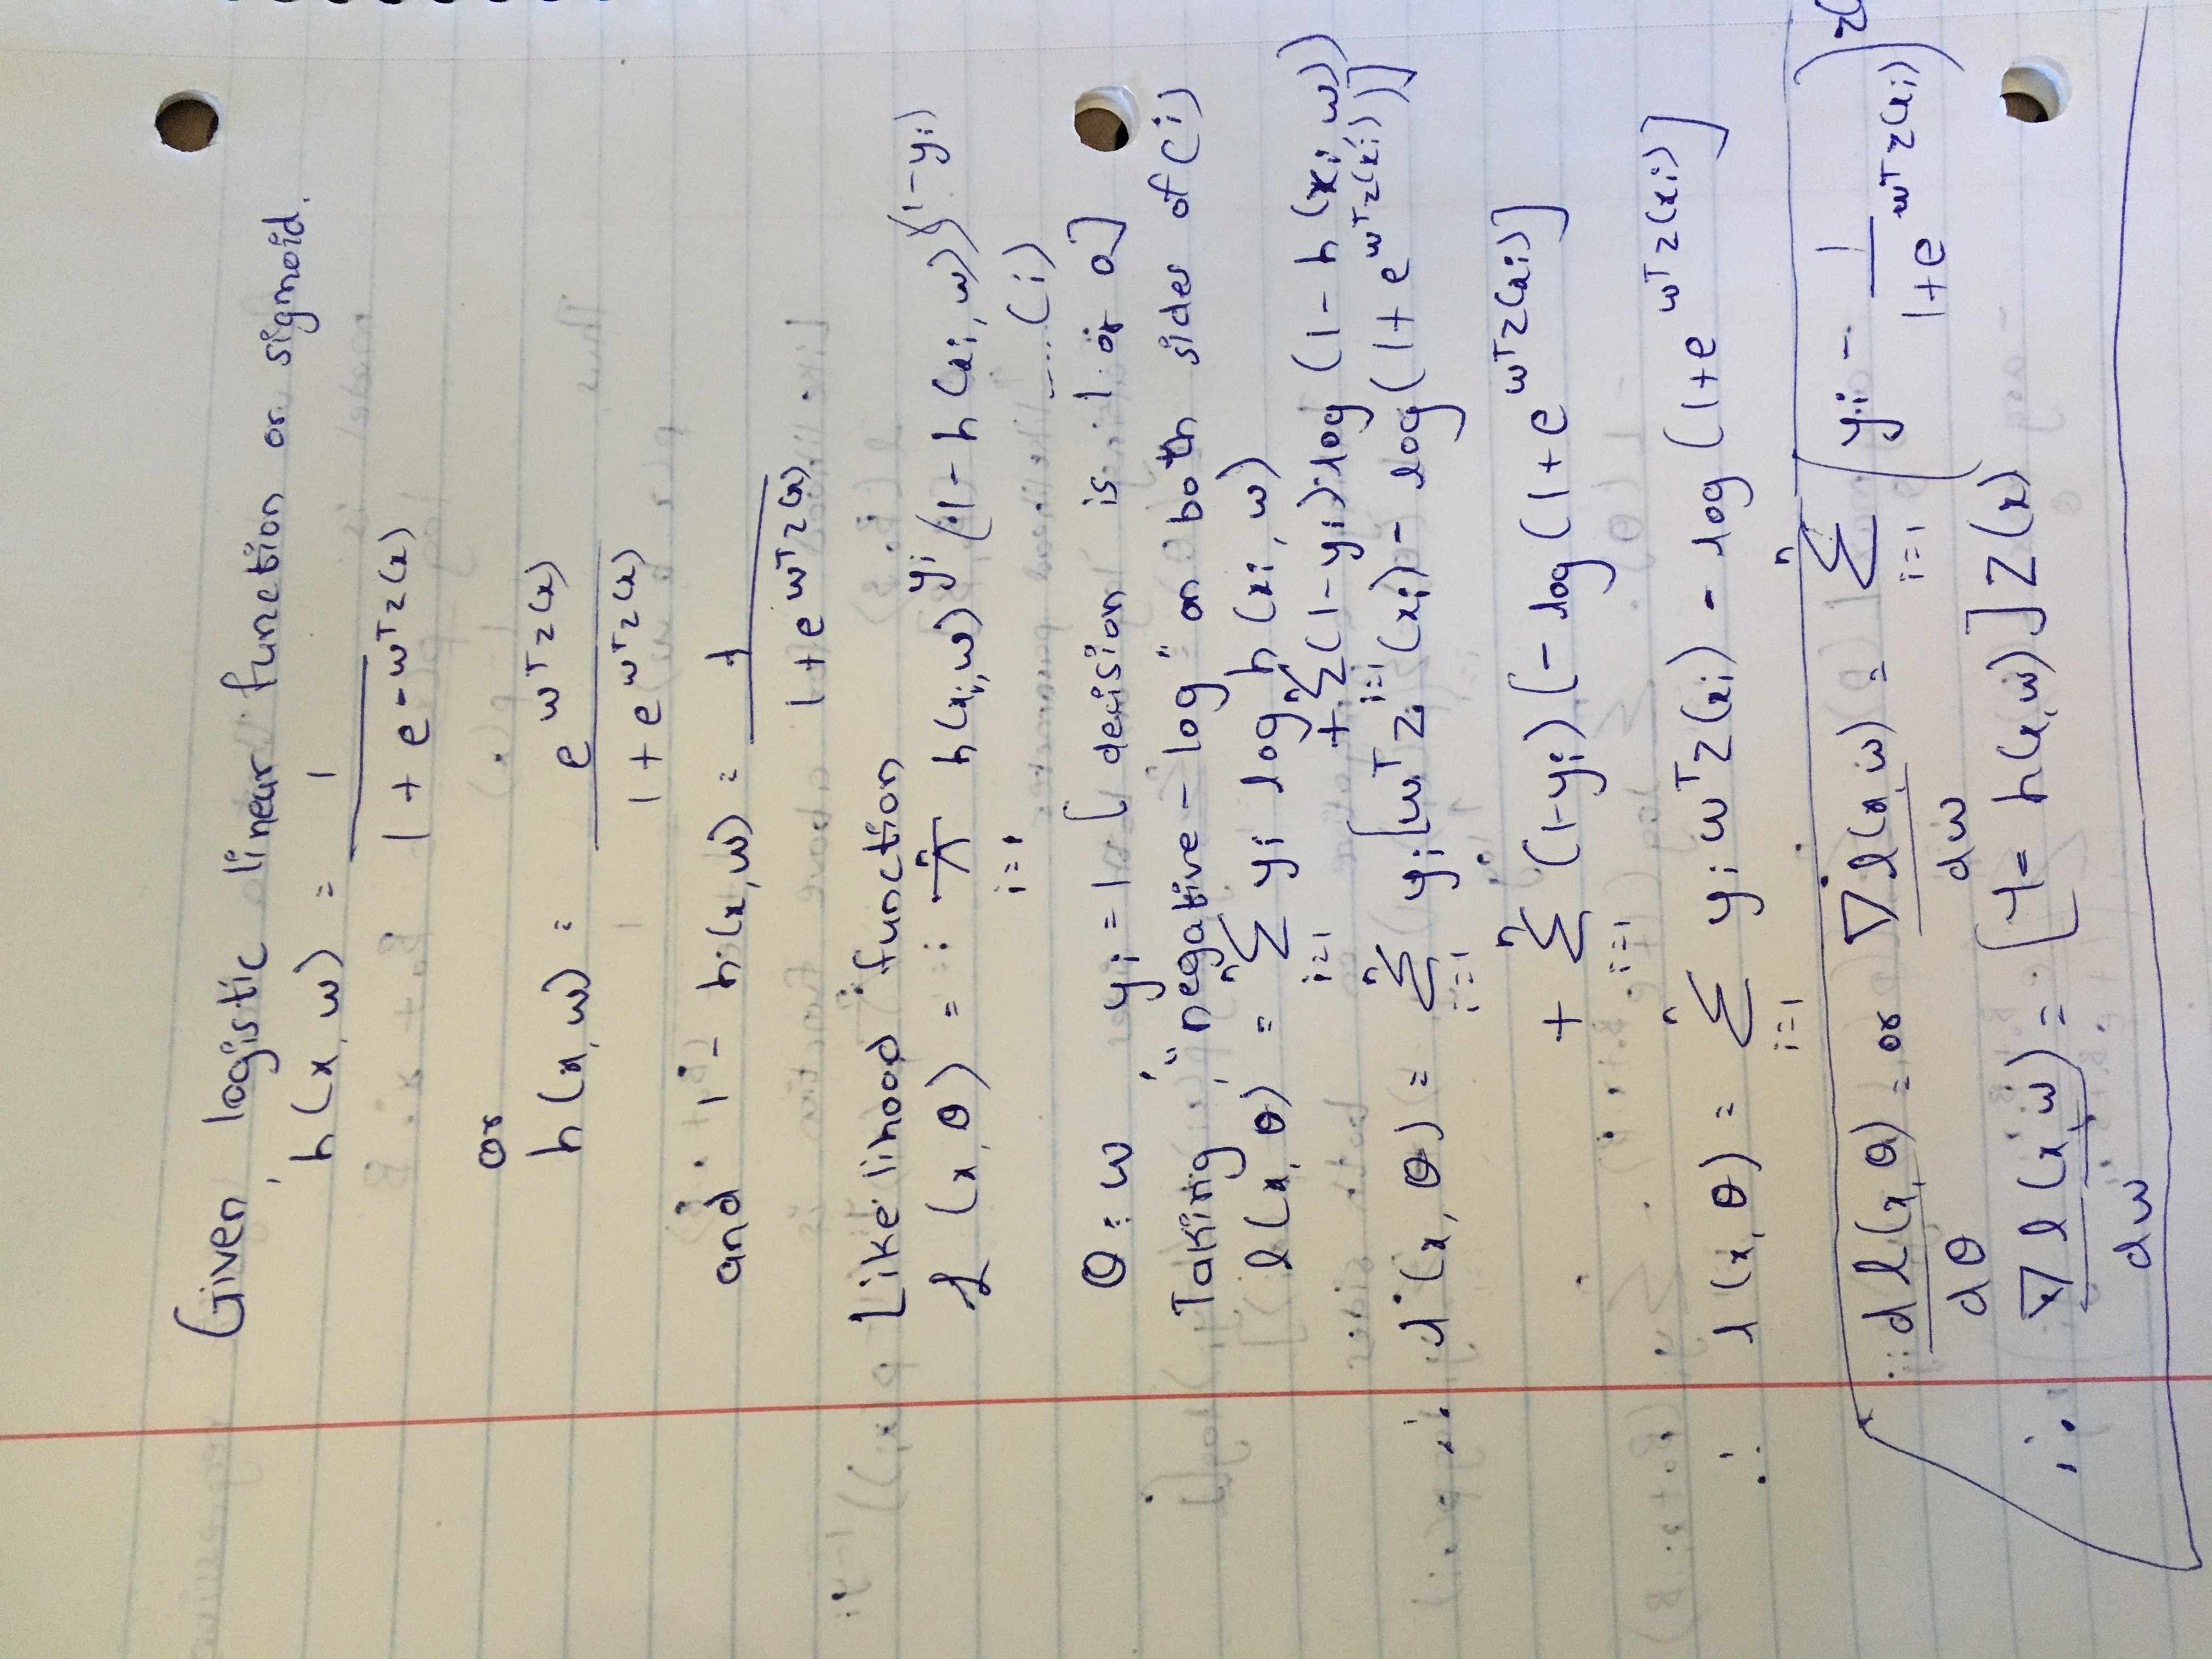 Given, logistic linear function or sigmoid.
h(x, w) = 1 / (1 + e^(-wᵀz(x)))
or
h(x, w) = e^(wᵀz(x)) / (1 + e^(wᵀz(x)))
and 1 - h(x, w) = 1 / (1 + e^(wᵀz(x)))
Likelihood function
L (x, θ) = π_{i=1}^{n} h(xi, w)^(yi) (1 - h(xi, w))^(1-yi)
....(i)
θ = w, yi = 1 [decision is 1 or 0]
Taking, "negative-log" on both sides of (i)
l(x, θ) = Σ_{i=1}^{n} yi log h(xi, w)
+ Σ_{i=1}^{n} (1-yi) log (1 - h(xi, w))
∴ l(x, θ) = Σ_{i=1}^{n} yi [wᵀz(xi) - log(1 + e^(wᵀz(xi)))]
+ Σ_{i=1}^{n} (1-yi) [- log (1+e^(wᵀz(xi))]
∴ l(x, θ) = Σ_{i=1}^{n} yi wᵀz(xi) - log (1+e^(wᵀz(xi))]
dl(x, θ)/dθ = or ∇l(x, w)/dw = Σ_{i=1}^{n} (yi - 1/(1+e^(wᵀz(xi)))) z(
∴ ∇l(x, w)/dw = [Y - h(x, w)] Z(x)